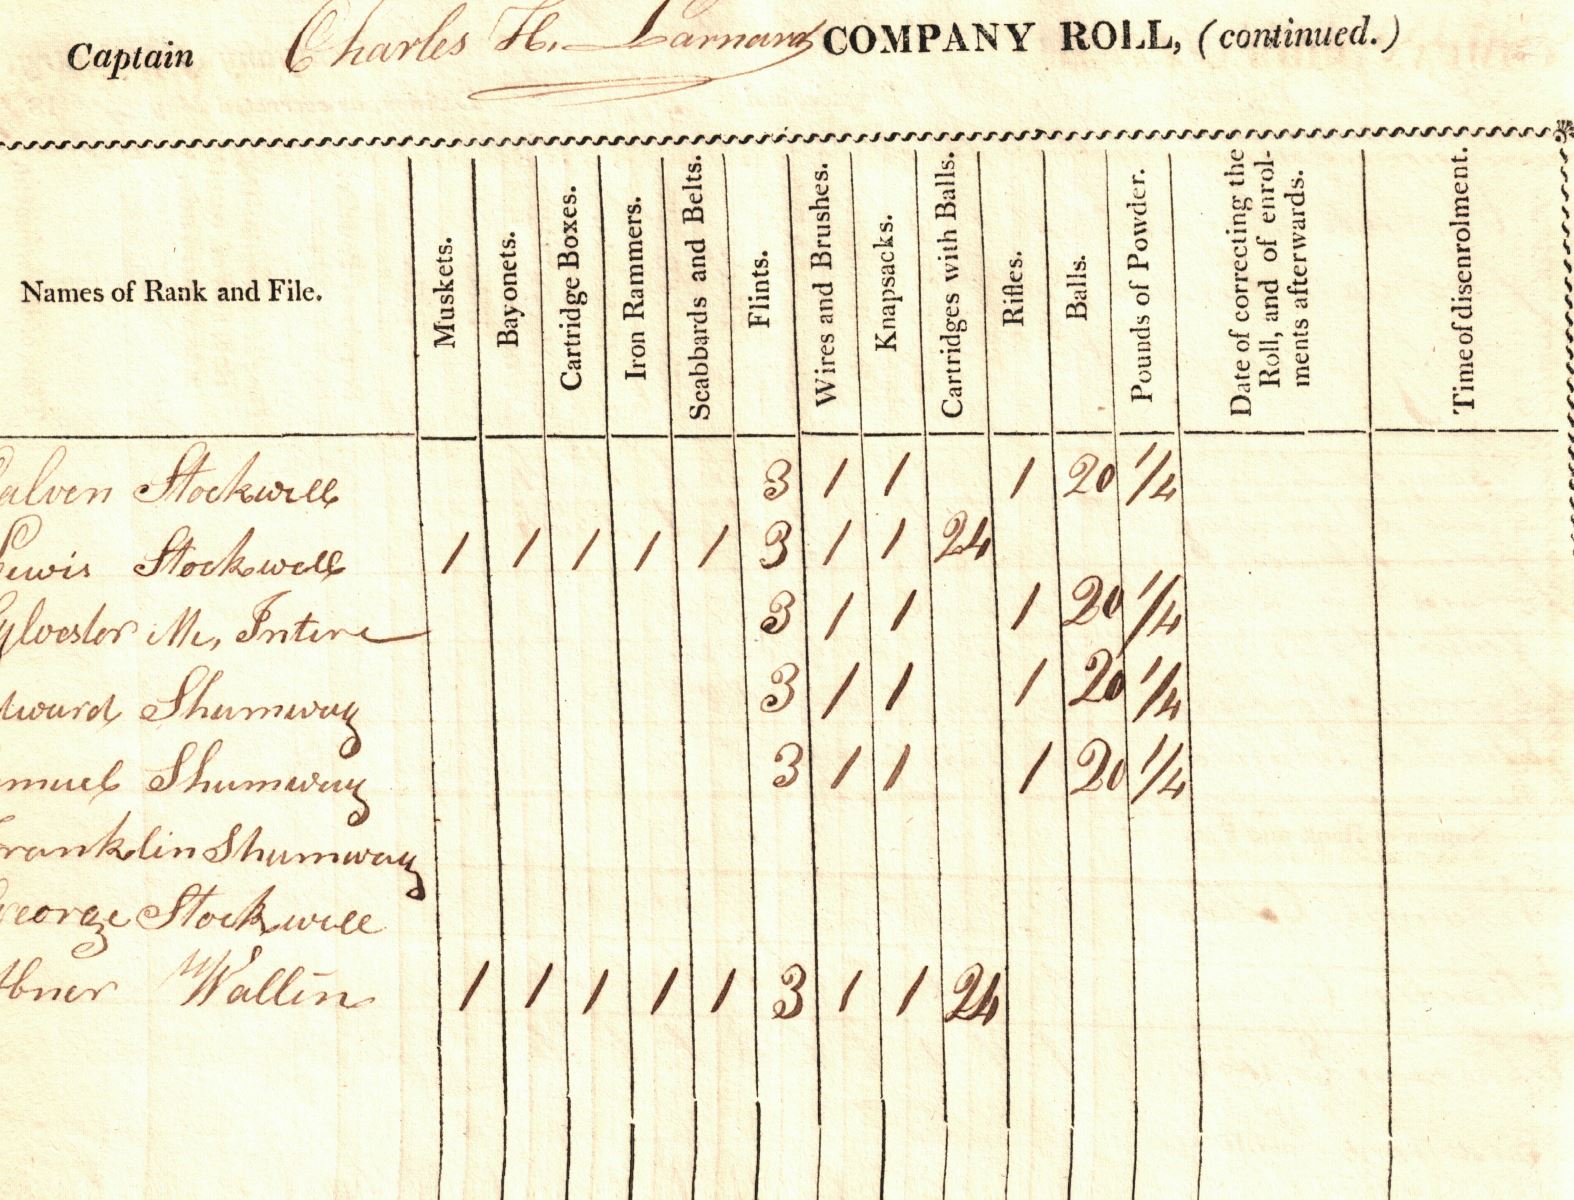 Captain Charles H. Larnard COMPANY ROLL, (continued.)
Names of Rank and File.
Muskets.
Bayonets.
Cartridge Boxes.
Iron Rammers.
Scabbards and Belts.
Flints.
Wires and Brushes.
Knapsacks.
Cartridges with Balls.
Rifles.
Balls.
Pounds of Powder.
Date of correcting the
Roll, and of enrol-
ments afterwards.
Time of disenrolment.
alven Stockwell 3 1 1 1 20 1/4
Lewis Stockwell 1 1 1 1 1 3 1 1 24
ylvester Mc, Intire 3 1 1 1 20 1/4
dward Shumway 3 1 1 1 20 1/4
muel Shumway 3 1 1 1 20 1/4
ranklin Shumway
George Stockwell
bner Wallin 1 1 1 1 1 3 1 1 24